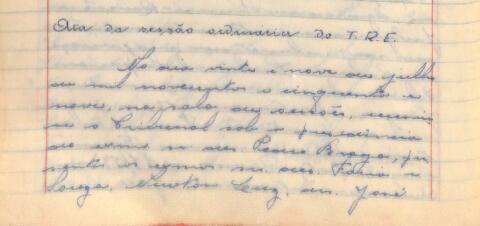 Ata da sessão ordinaria do T.R.E.
No dia vinte e nove de julho
de mil novecentos e cinquenta e
nove, na sala de sessões, reuniu
se o Tribunal sob a presidência
do exmo sr des. Braga, pre
sentes os exmos srs. des.
Souza, Newton Luz, drs. José